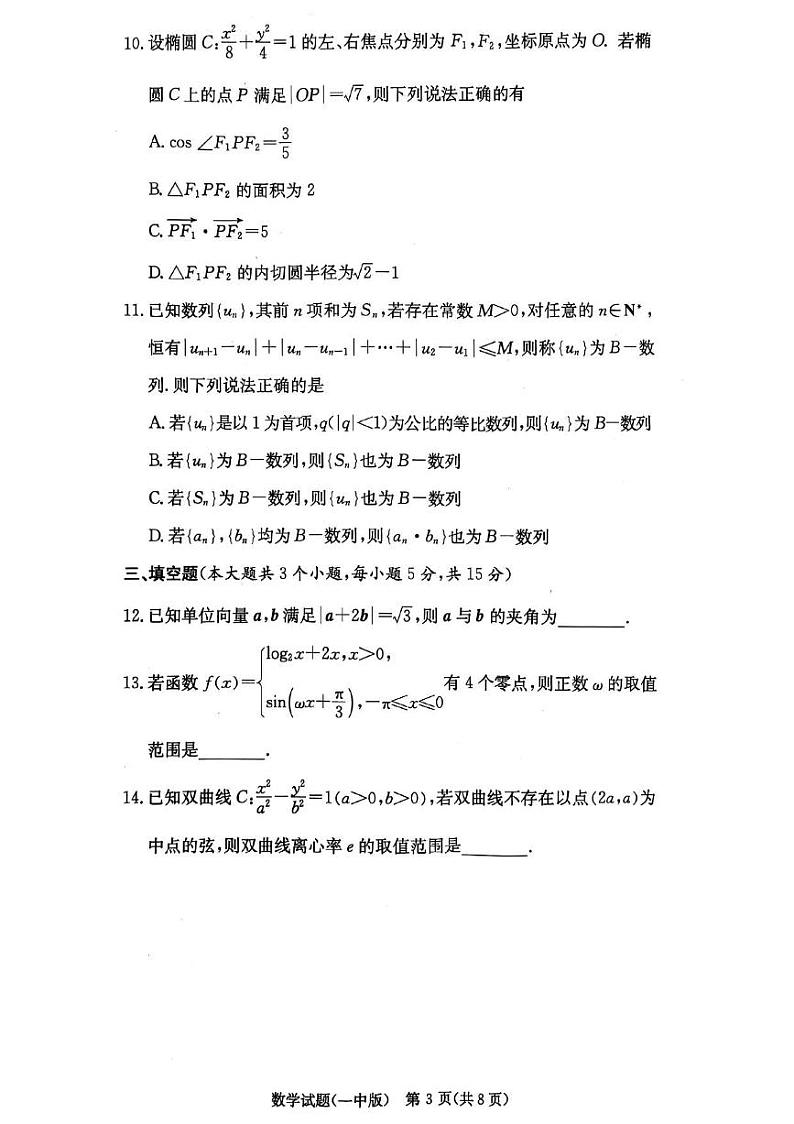 10. 设椭圆 C:x²/8+y²/4=1 的左、右焦点分别为 F₁,F₂,坐标原点为 O. 若椭
圆 C 上的点 P 满足|OP|=√7,则下列说法正确的有
A. cos ∠F₁PF₂=3/5
B. △F₁PF₂ 的面积为 2
C. PF₁→·PF₂→=5
D. △F₁PF₂ 的内切圆半径为√2−1
11. 已知数列{uₙ},其前 n 项和为 Sₙ,若存在常数 M>0,对任意的 n∈N*,
恒有|uₙ₊₁−uₙ|+|uₙ−uₙ₋₁|+⋯+|u₂−u₁|≤M,则称{uₙ}为 B−数
列. 则下列说法正确的是
A. 若{uₙ}是以 1 为首项,q(|q|<1)为公比的等比数列,则{uₙ}为 B−数列
B. 若{uₙ}为 B−数列,则{Sₙ}也为 B−数列
C. 若{Sₙ}为 B−数列,则{uₙ}也为 B−数列
D. 若{aₙ},{bₙ}均为 B−数列,则{aₙ·bₙ}也为 B−数列
三、填空题(本大题共 3 个小题,每小题 5 分,共 15 分)
12. 已知单位向量 a,b 满足|a+2b|=√3,则 a 与 b 的夹角为______.
13. 若函数 f(x)={log₂x+2x,x>0, sin(ωx+π/3),−π≤x≤0 有 4 个零点,则正数 ω 的取值
范围是______.
14. 已知双曲线 C:x²/a²−y²/b²=1(a>0,b>0),若双曲线不存在以点(2a,a)为
中点的弦,则双曲线离心率 e 的取值范围是______.
数学试题(一中版) 第 3 页(共 8 页)